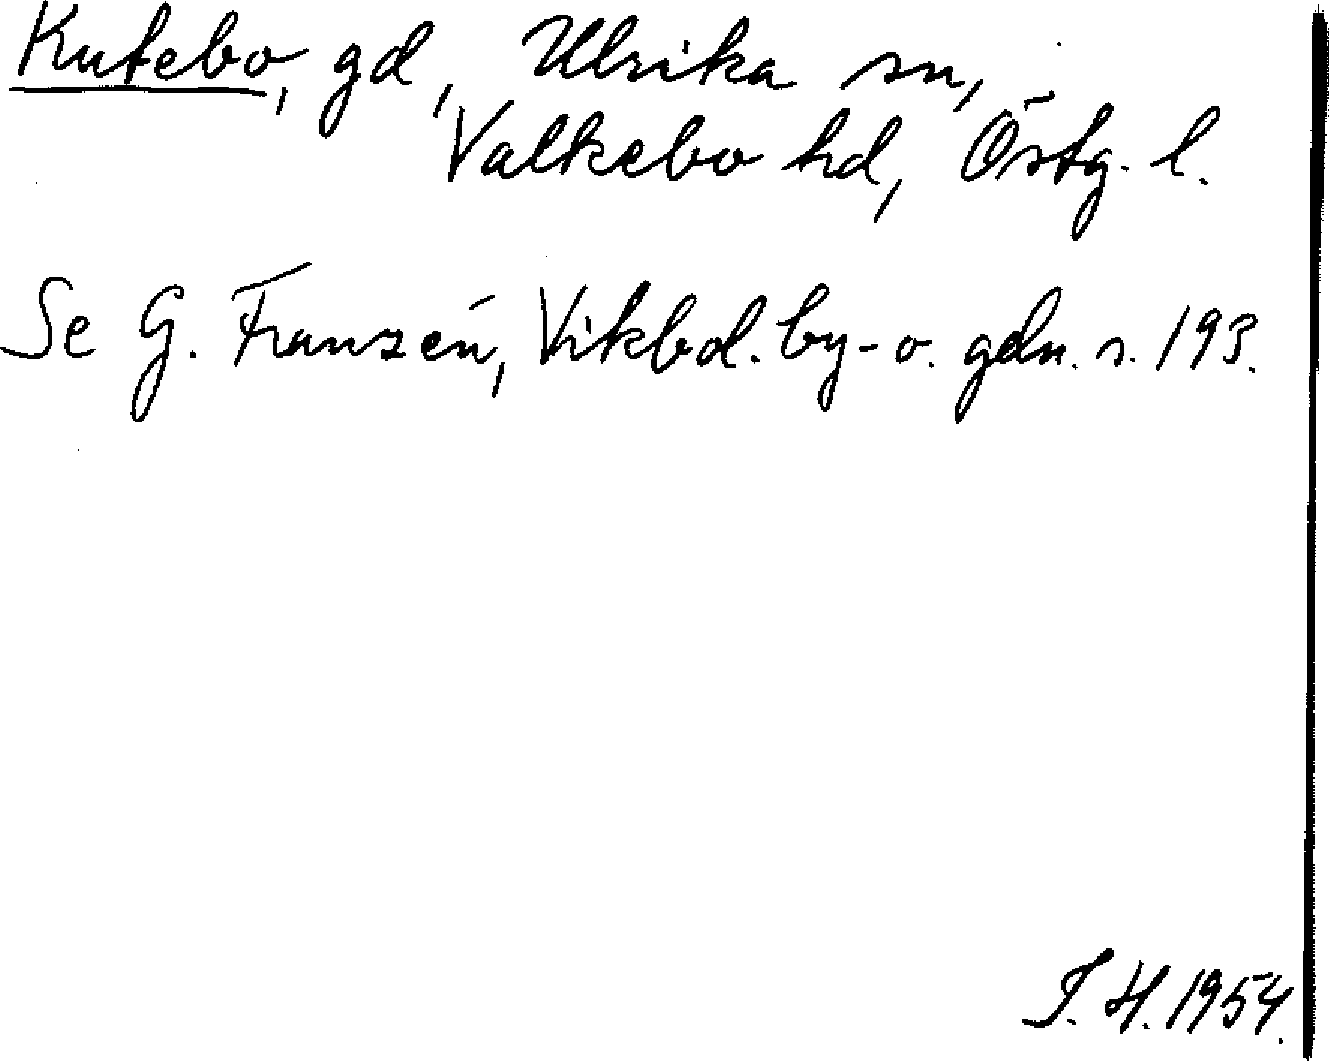 Kutebo, gd, Ulrika sn,
Valkebo hd, Östg. l.
Se G. Franzén, Vikbd. by- o. gdn. s. 193.
I. H. 1954.